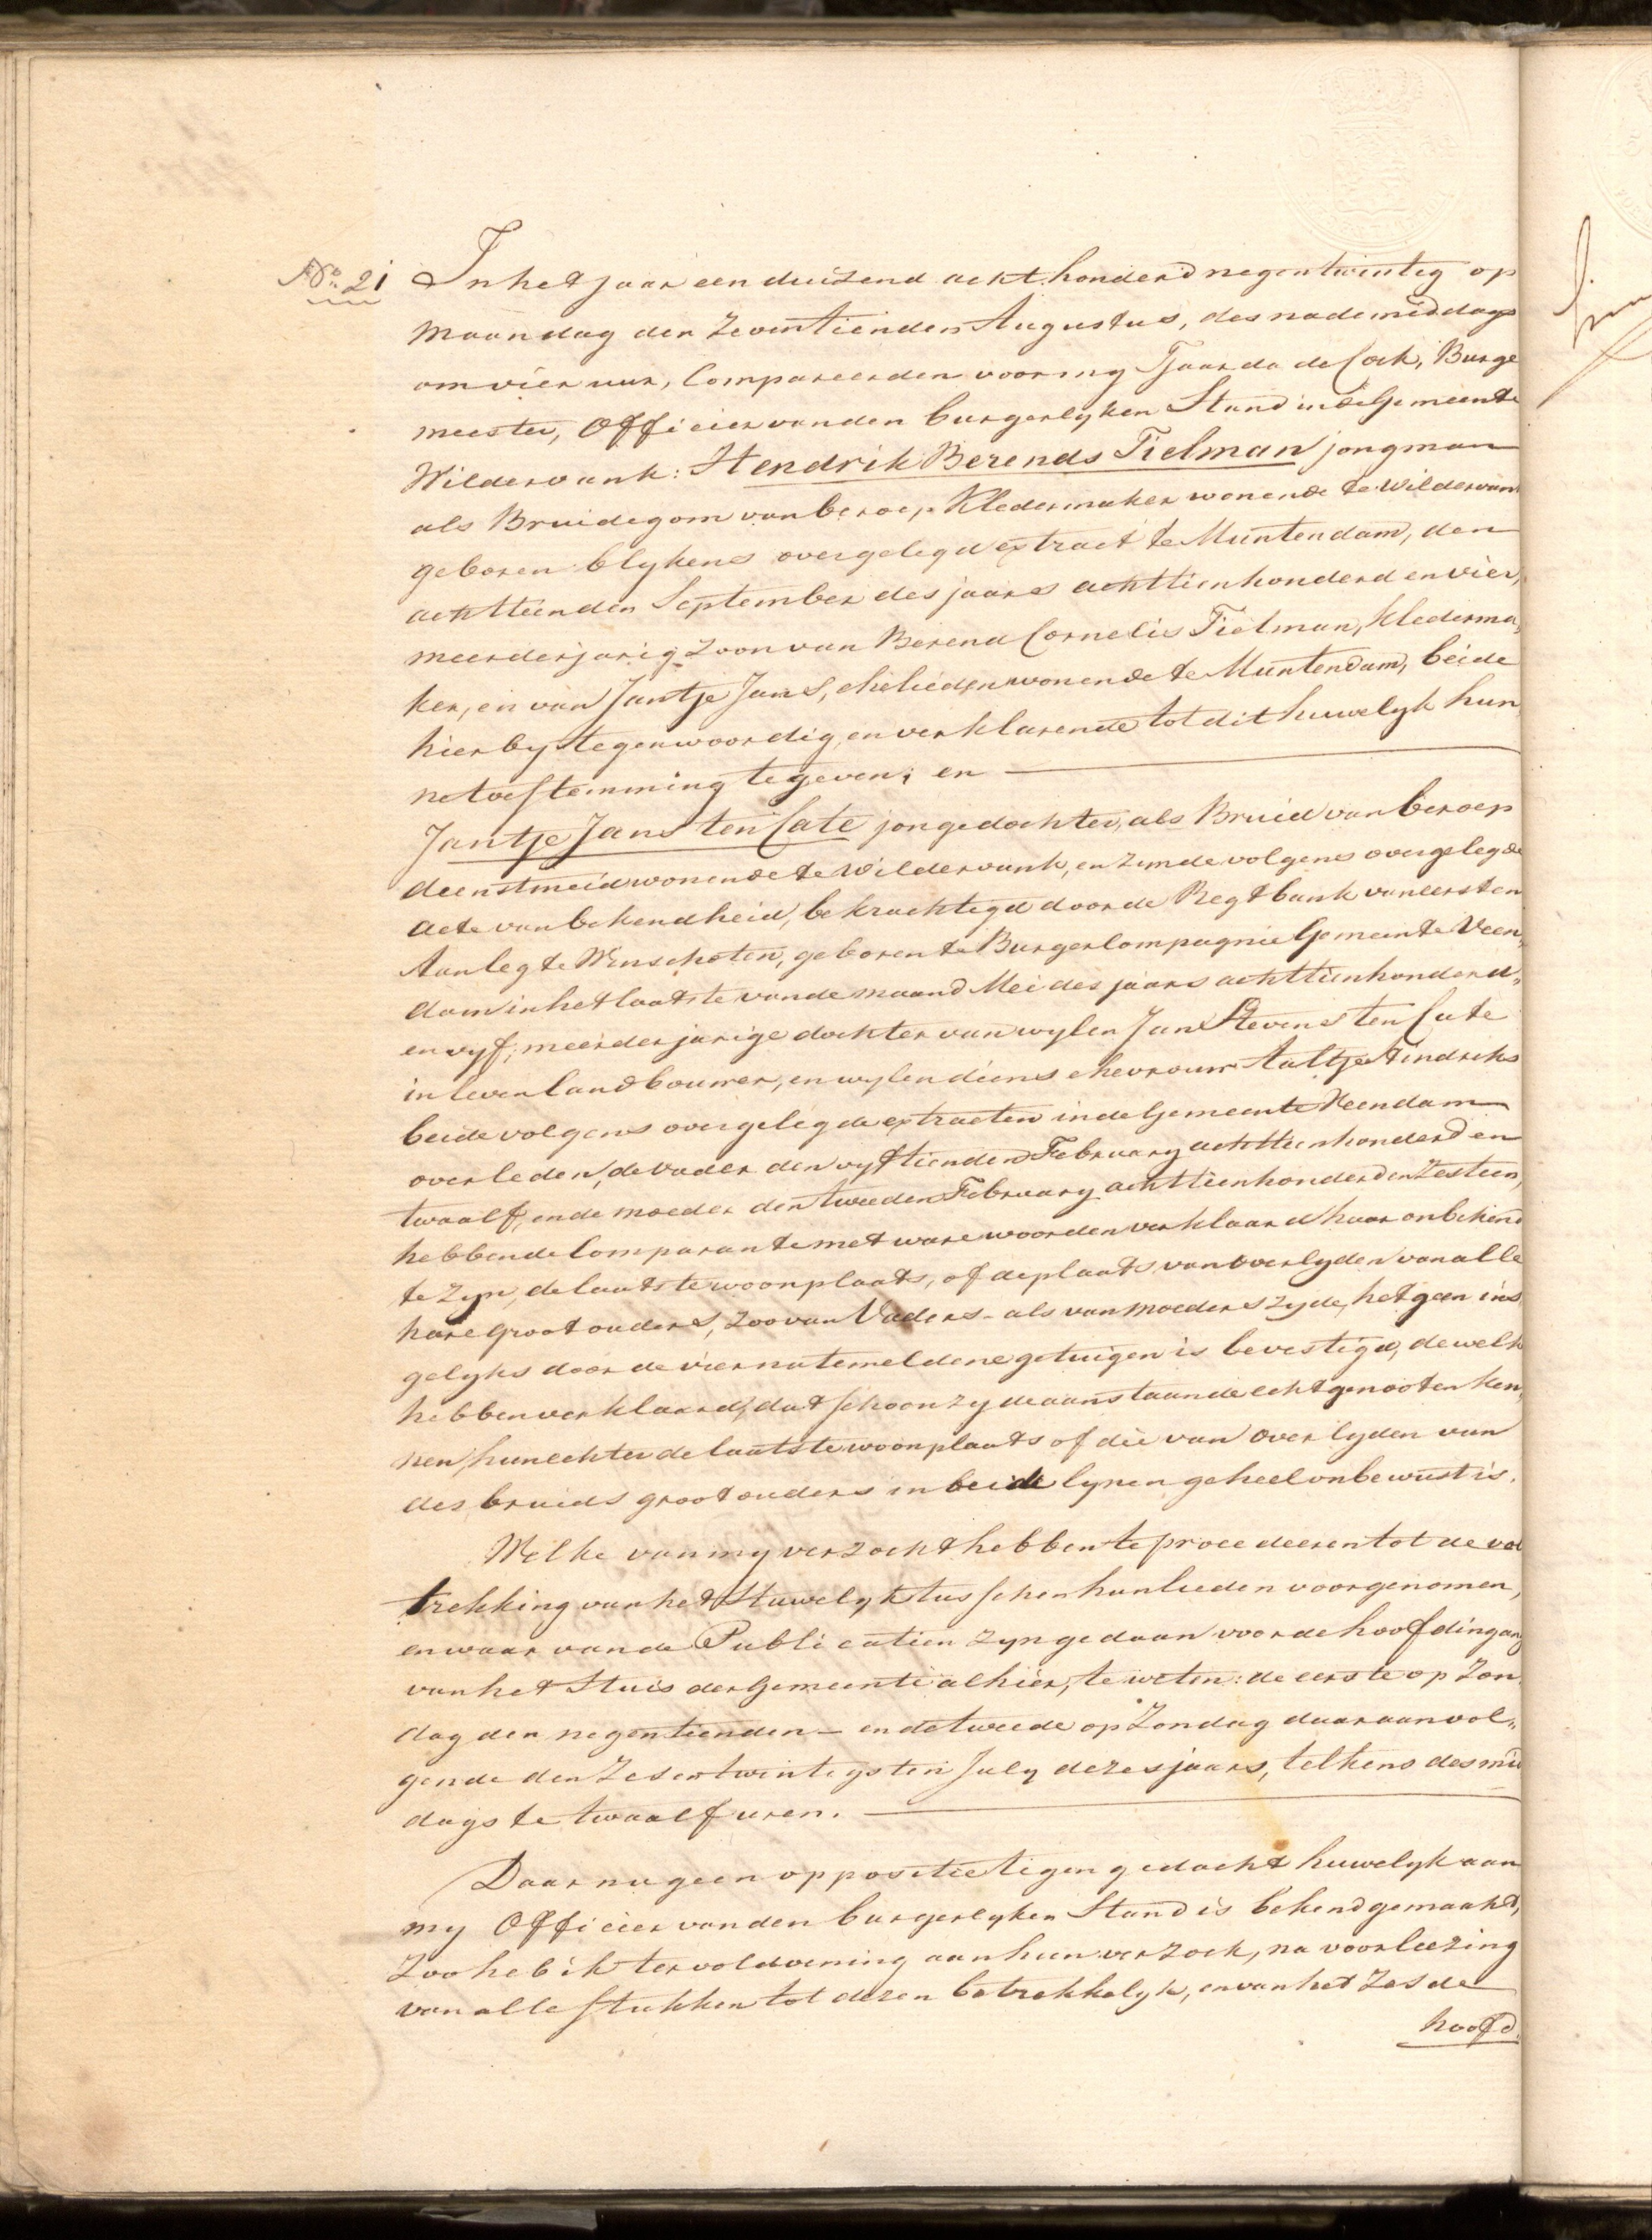 No. 21 In het jaar een duizend acht honderd negentwintig op
Maandag den Zeventienden Augustus, des nademiddags
om vier uur, Compareerden voor my Tjaarda de Cock, Burge
meester, Officier van den burgerlyken Stand in de Gemeente
Wildervank: Hendrik Berends Tielman jongman
als Bruidegom van beroep Kledermaker wonende te Wildervank
geboren blykens overgelegd extract te Muntendam, den
achttienden September des jaars achttienhonderd en vier,
meerderjarig Zoon van Berend Cornelis Tielman, klederma,
ker, en van Jantje Jans, ehelieden wonende te Muntendam, beide
hierby tegenwoordig, en verklarende tot dit huwelyk hun,
ne toestemming te geven; en
Jantje Jans ten Cate jongedochter, als Bruid van beroep
deenstmeid wonende te Wildervank, en zynde volgens overgelegde
acte van bekendheid, bekrachtigd door de Regtbank van eersten
Aanleg te Winschoten, geboren te Burgercompagnie Gemeente Veen,
dam in het laatste van de maand Mei des jaars achttienhonderd,
en vyf; meerderjarige dochter van wylen Jan Stevens ten Cate
in leven landbouwer, en wylen diens ehevrouw Aaltje Hindriks
beide volgens overgelegde extracten in de Gemeente Veendam
overleden, de vader den vyftienden February achttienhonderd en
twaalf, en de moeder den tweeden February achttienhonderd en Zestien,
hebbende Comparante met ware woorden verklaard haar onbekend
te Zyn, de laatste woonplaats, of de plaats van overlyden van alle
hare grootouders, zoo van Vaders- als van moeders zyde, hetgeen ins
gelyks door de vier natemeldene getuigen is bevestigd, de welke
hebben verklaard, dat schoon zy de aanstaande echtgenooten ken,
nen, hun echter de laatste woonplaats of die van overlyden van
des bruids grootouders in beide lynen geheel onbewust is.
Welke van my verzocht hebben te procedeeren tot de vol
trekking van het Huwelyk tusschen hunlieden voorgenomen,
en waar van de Publicatien zyn gedaan voor de hoofdingang
van het Huis der Gemeente alhier, te weten: de eerste op Zon,
dag den negentienden - en de tweede op Zondag daaraanvol,
gende den Zesentwintigsten July dezes jaars, telkens des mid
dags te twaalf uren.
Daar nu geen oppositie tegen gedacht huwelyk aan
my Officier van den burgerlyken Stand is bekend gemaakt,
Zoo heb ik ter voldoening aan hun verzoek, na voorleezing
van alle stukken tot dezen betrekkelyk, en van het Zesde
hoofd,